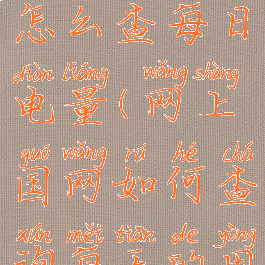 怎么查每日
diàn liáng wǎng shàng
电量(网上
guó wǎng rú hé chá
国网如何查
xún měi tiān de yòng
询每天的用